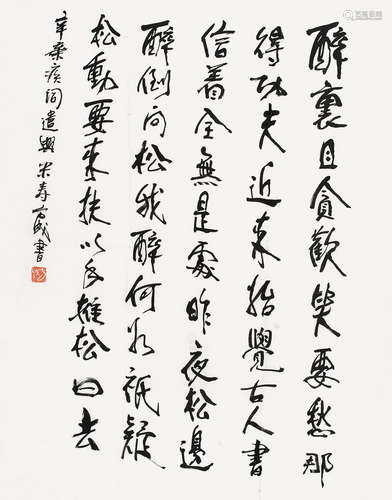 醉裏且貪歡笑要愁那
得功夫近来始覺古人書
信着全無是處昨夜松邊
醉倒问松我醉何如祇疑
松動要来扶以手推松曰去
辛棄疾词遣興米寿書